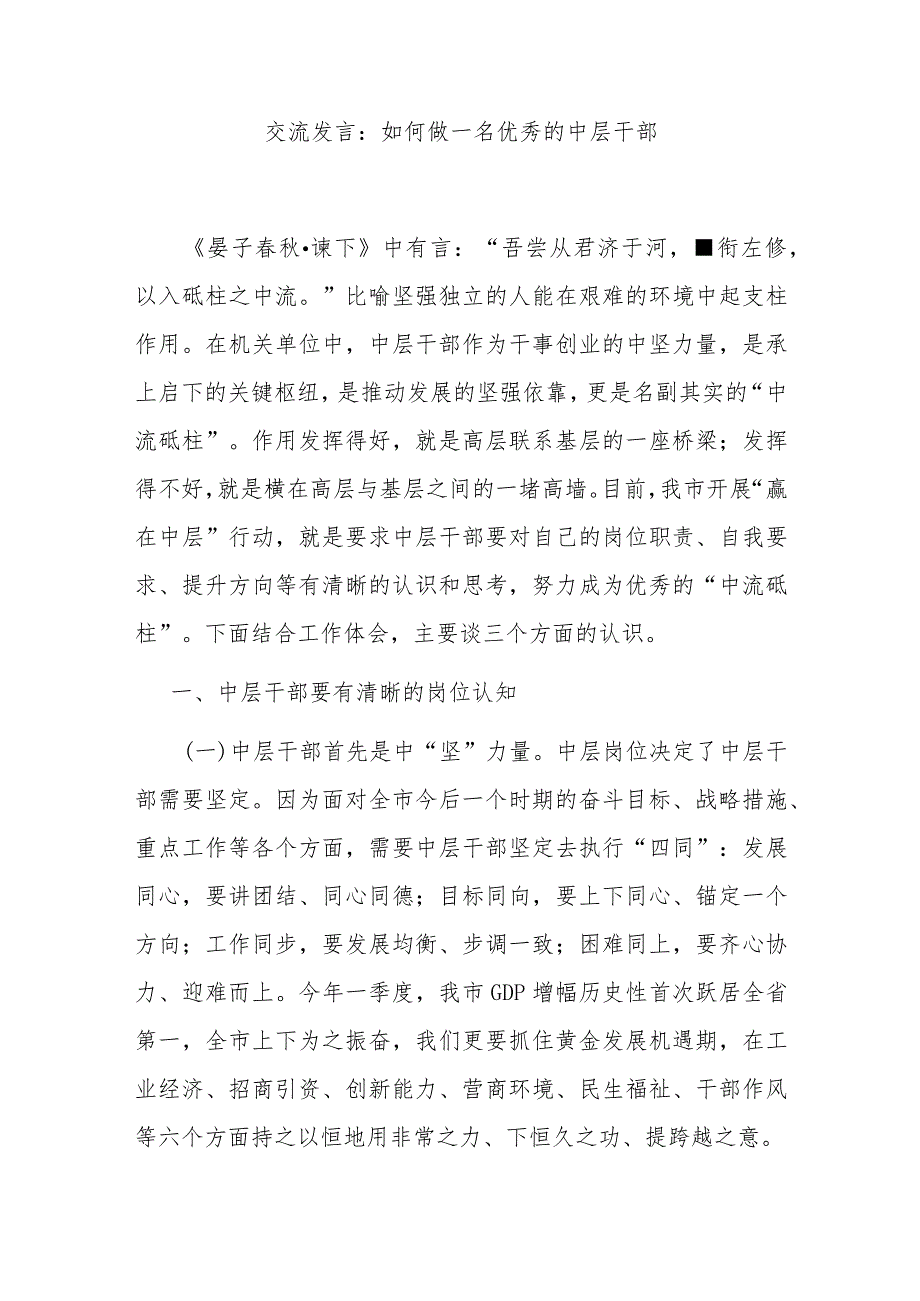 交流发言：如何做一名优秀的中层干部
《晏子春秋•谏下》中有言：“吾尝从君济于河，■衔左修，
以入砥柱之中流。”比喻坚强独立的人能在艰难的环境中起支柱
作用。在机关单位中，中层干部作为干事创业的中坚力量，是承
上启下的关键枢纽，是推动发展的坚强依靠，更是名副其实的“中
流砥柱”。作用发挥得好，就是高层联系基层的一座桥梁；发挥
得不好，就是横在高层与基层之间的一堵高墙。目前，我市开展“赢
在中层”行动，就是要求中层干部要对自己的岗位职责、自我要
求、提升方向等有清晰的认识和思考，努力成为优秀的“中流砥
柱”。下面结合工作体会，主要谈三个方面的认识。
一、中层干部要有清晰的岗位认知
(一)中层干部首先是中“坚”力量。中层岗位决定了中层干
部需要坚定。因为面对全市今后一个时期的奋斗目标、战略措施、
重点工作等各个方面，需要中层干部坚定去执行“四同”：发展
同心，要讲团结、同心同德；目标同向，要上下同心、锚定一个
方向；工作同步，要发展均衡、步调一致；困难同上，要齐心协
力、迎难而上。今年一季度，我市GDP增幅历史性首次跃居全省
第一，全市上下为之振奋，我们更要抓住黄金发展机遇期，在工
业经济、招商引资、创新能力、营商环境、民生福祉、干部作风
等六个方面持之以恒地用非常之力、下恒久之功、提跨越之意。